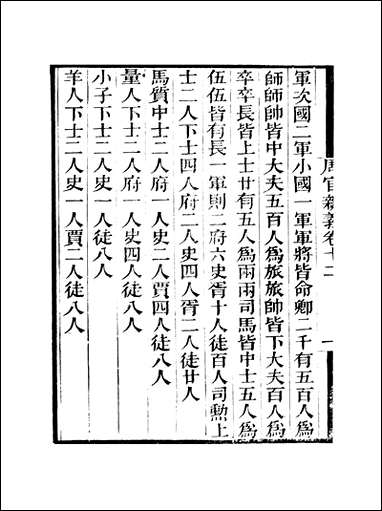 周官新義卷十二 一
軍次國二軍小國一軍軍將皆命卿二千有五百人爲
師師帥皆中大夫五百人爲旅旅帥皆下大夫百人爲
卒卒長皆上士廿有五人爲兩兩司馬皆中士五人爲
伍伍皆有長一軍則二府六史胥十人徒百人司勳上
士二人下士四人府二人史四人胥二人徒廿人
馬質中士二人府一人史二人賈四人徒八人
量人下士二人府一人史四人徒八人
小子下士二人史一人徒八人
羊人下士二人史一人賈二人徒八人